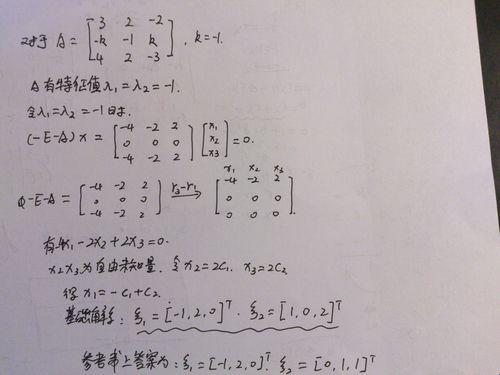 对于 A = [-3 2 -2; -k -1 k; 4 2 -3], k=-1.
A有特征值 λ₁=λ₂=-1.
令λ₁=λ₂=-1时.
(-E-A)x = [-4 -2 2; 0 0 0; -4 -2 2] [x₁; x₂; x₃] = 0.
-E-A = [-4 -2 2; 0 0 0; -4 -2 2] r₃-r₁ → x₁ x₂ x₃ [-4 -2 2; 0 0 0; 0 0 0].
有 -4x₁-2x₂+2x₃=0.
x₂x₃为自由未知量. 令x₂=2c₁. x₃=2c₂
得 x₁=-c₁+c₂.
基础解系: ξ₁=[-1,2,0]ᵀ. ξ₂=[1,0,2]ᵀ
参考书上答案为: ξ₁=[-1,2,0]ᵀ. ξ₂=[0,1,1]ᵀ